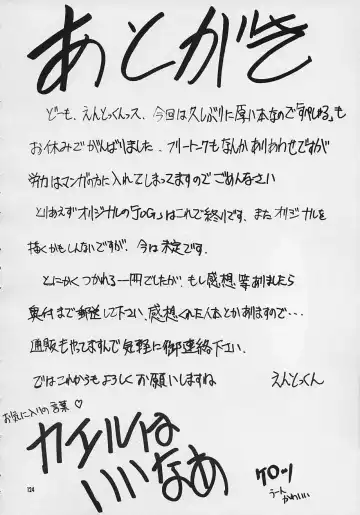 あとがき
どーも、えんとっくんっス、今回は久しぶりに厚い本なので「すぺしゃる」も
お休みでがんばりました。フリートークもなんかありあわせですが
労力はマンガの方に入れてしまってますのでごめんなさい
とりあえずオリジナルの「JOGs」はこれで終りです、またオリジナルを
描くかもしんないですが、今は未定です。
とにかくつかれる一冊でしたが、もし感想等ありましたら
奥付まで郵送して下さい、感想くれた人本とかありますので・・・
通販もやってますんで気軽に御連絡下さい、
ではこれからもよろしくお願いしますね えんとっくん
お気に入りの言葉♡
カエルは
いいなあ
ケロッ
かわいい
124